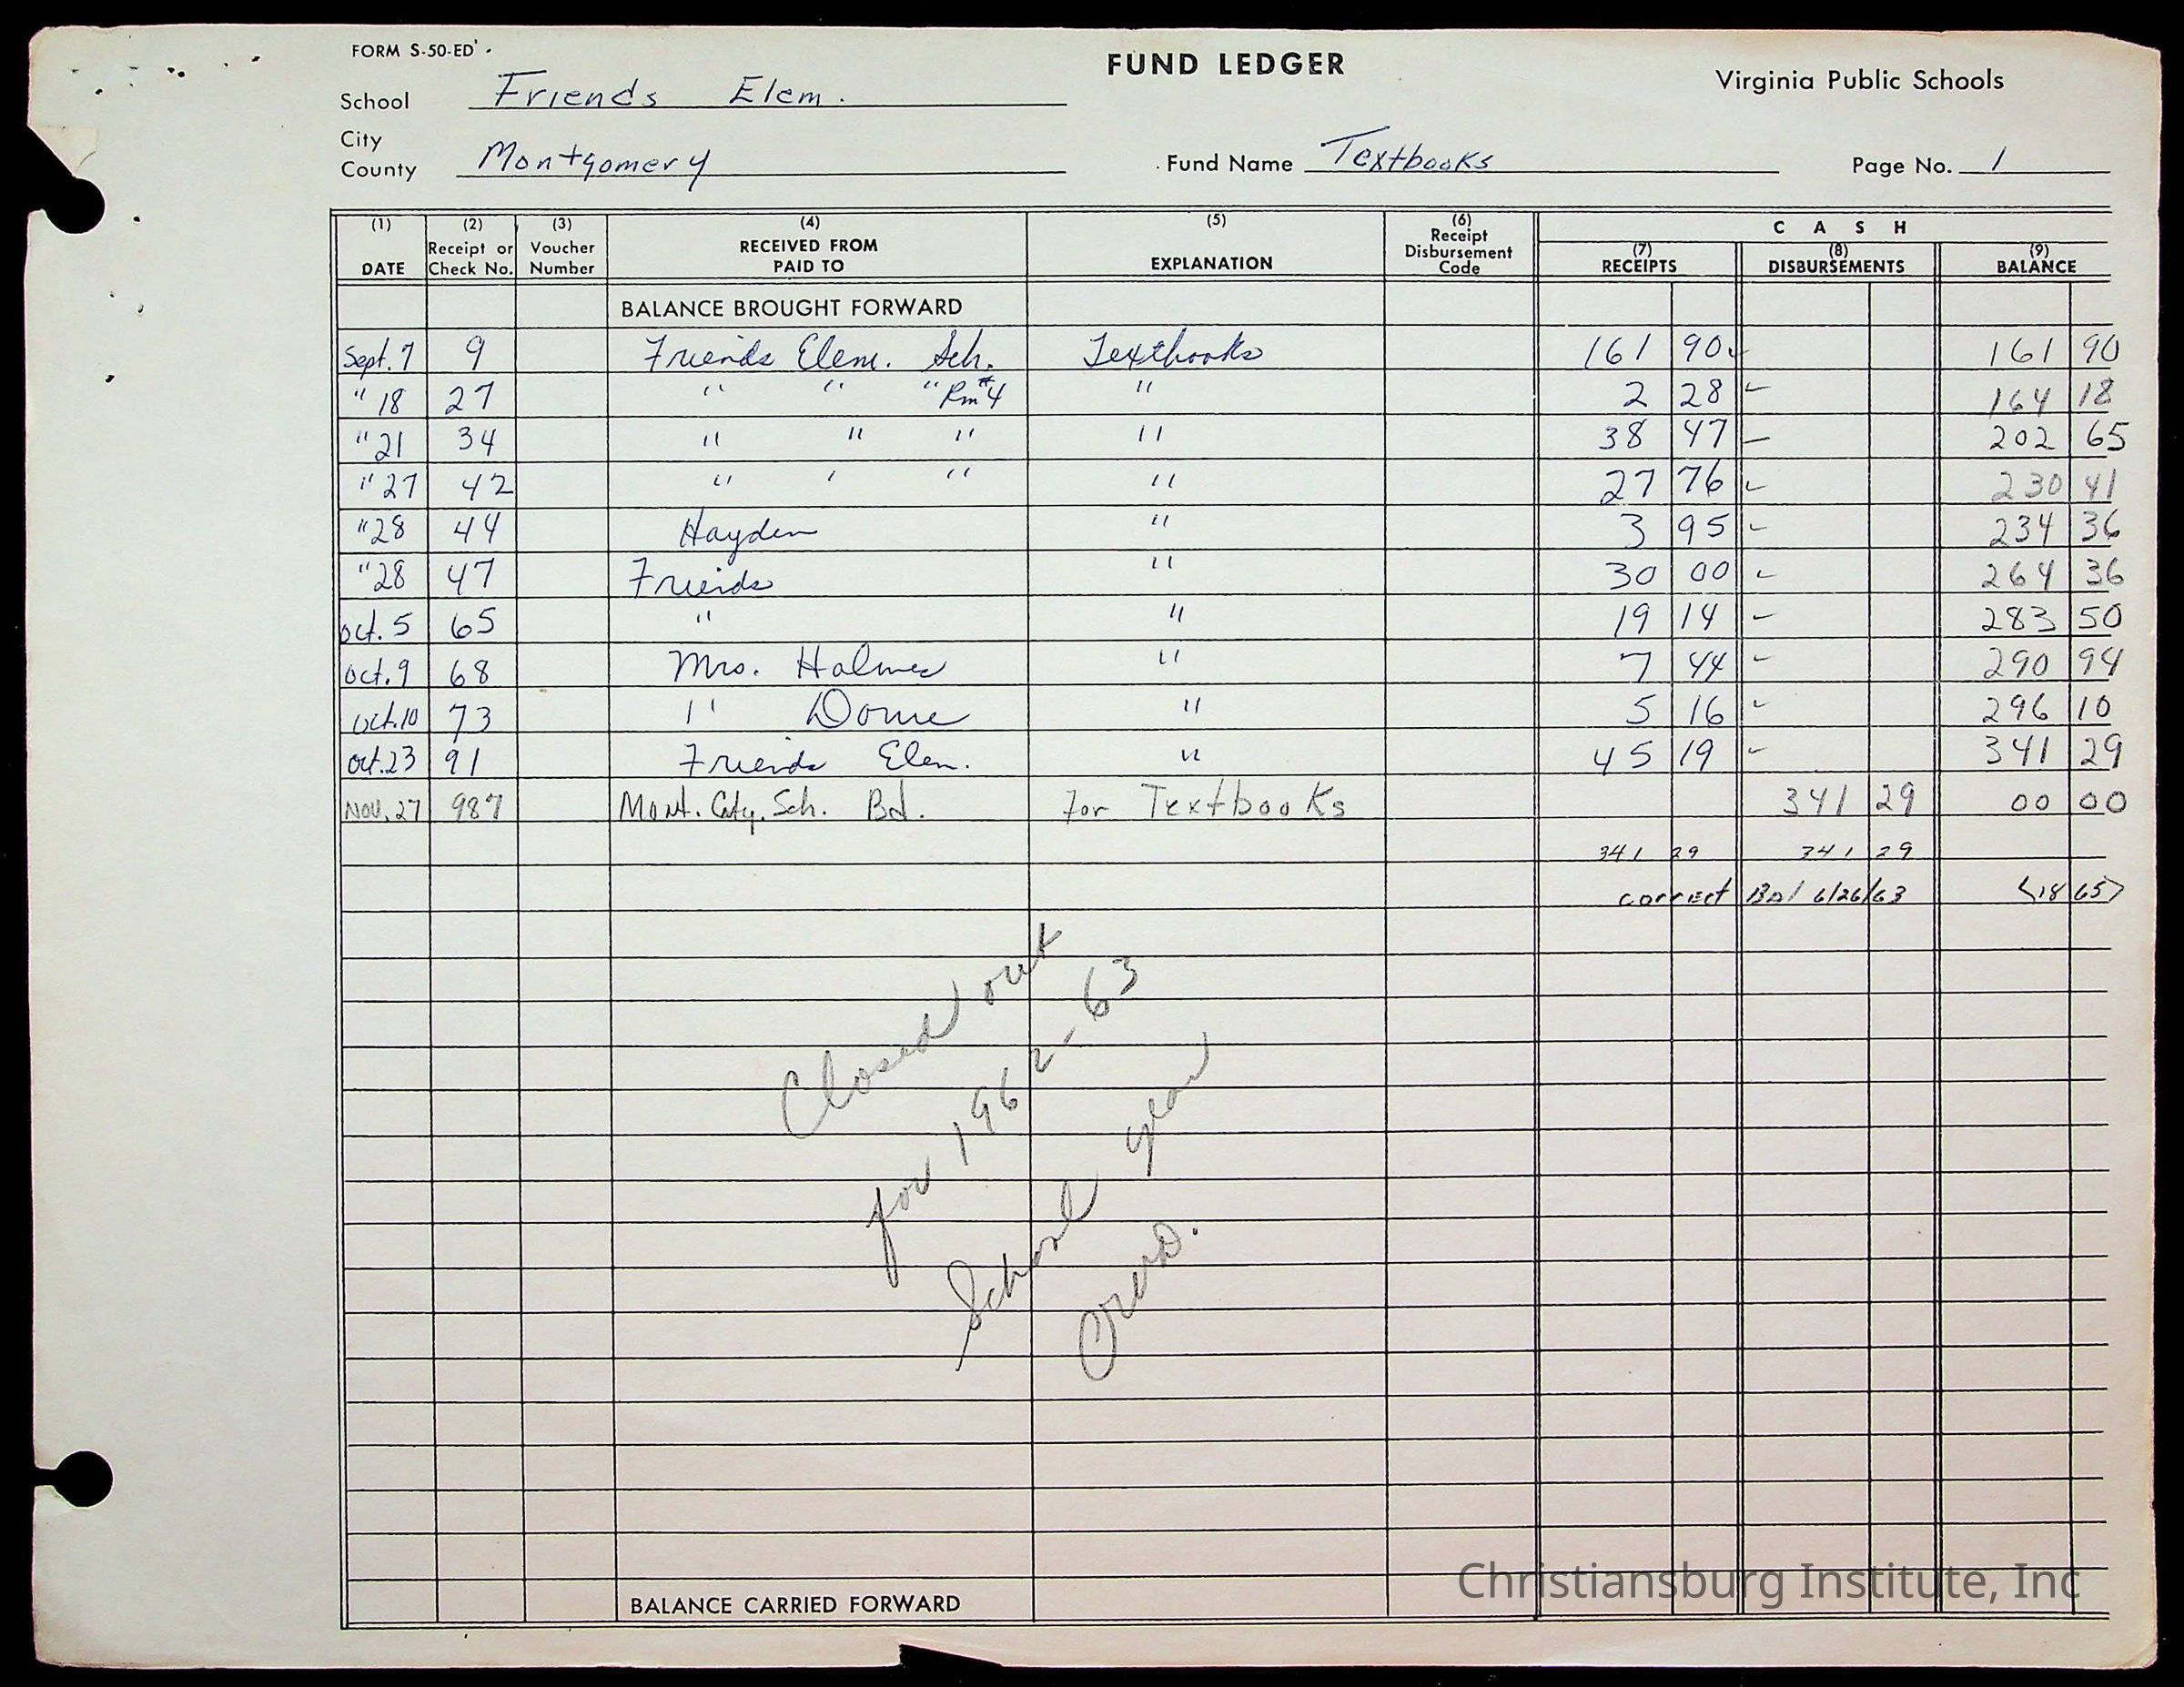 FORM S-50-ED
FUND LEDGER
Virginia Public Schools
School Friends Elem.
City
County Montgomery
Fund Name Textbooks
Page No. 1
(1) DATE (2) Receipt or Check No. (3) Voucher Number (4) RECEIVED FROM PAID TO (5) EXPLANATION (6) Receipt Disbursement Code CASH (7) RECEIPTS (8) DISBURSEMENTS (9) BALANCE
BALANCE BROUGHT FORWARD
Sept. 7 9 Friends Elem. Sch. Textbooks 161 90 161 90
" 18 27 " " " Rm #4 " 2 28 164 18
" 21 34 " " " " 38 47 202 65
" 27 42 " " " " 27 76 230 41
" 28 44 Hayden " 3 95 234 36
" 28 47 Friends " 30 00 264 36
Oct. 5 65 " " 19 14 283 50
Oct. 9 68 Mrs. Holmes " 7 44 290 94
Oct. 10 73 " " 5 16 296 10
Oct. 23 91 Friends Elem. " 45 19 341 29
Nov. 27 987 Mont. Cty. Sch. Bd. For Textbooks 341 29 00 00
341 29 341 29
correct Bal 6/26/63 <18 65>
Closed out
for 1962-63
School year
BALANCE CARRIED FORWARD
Christiansburg Institute, Inc